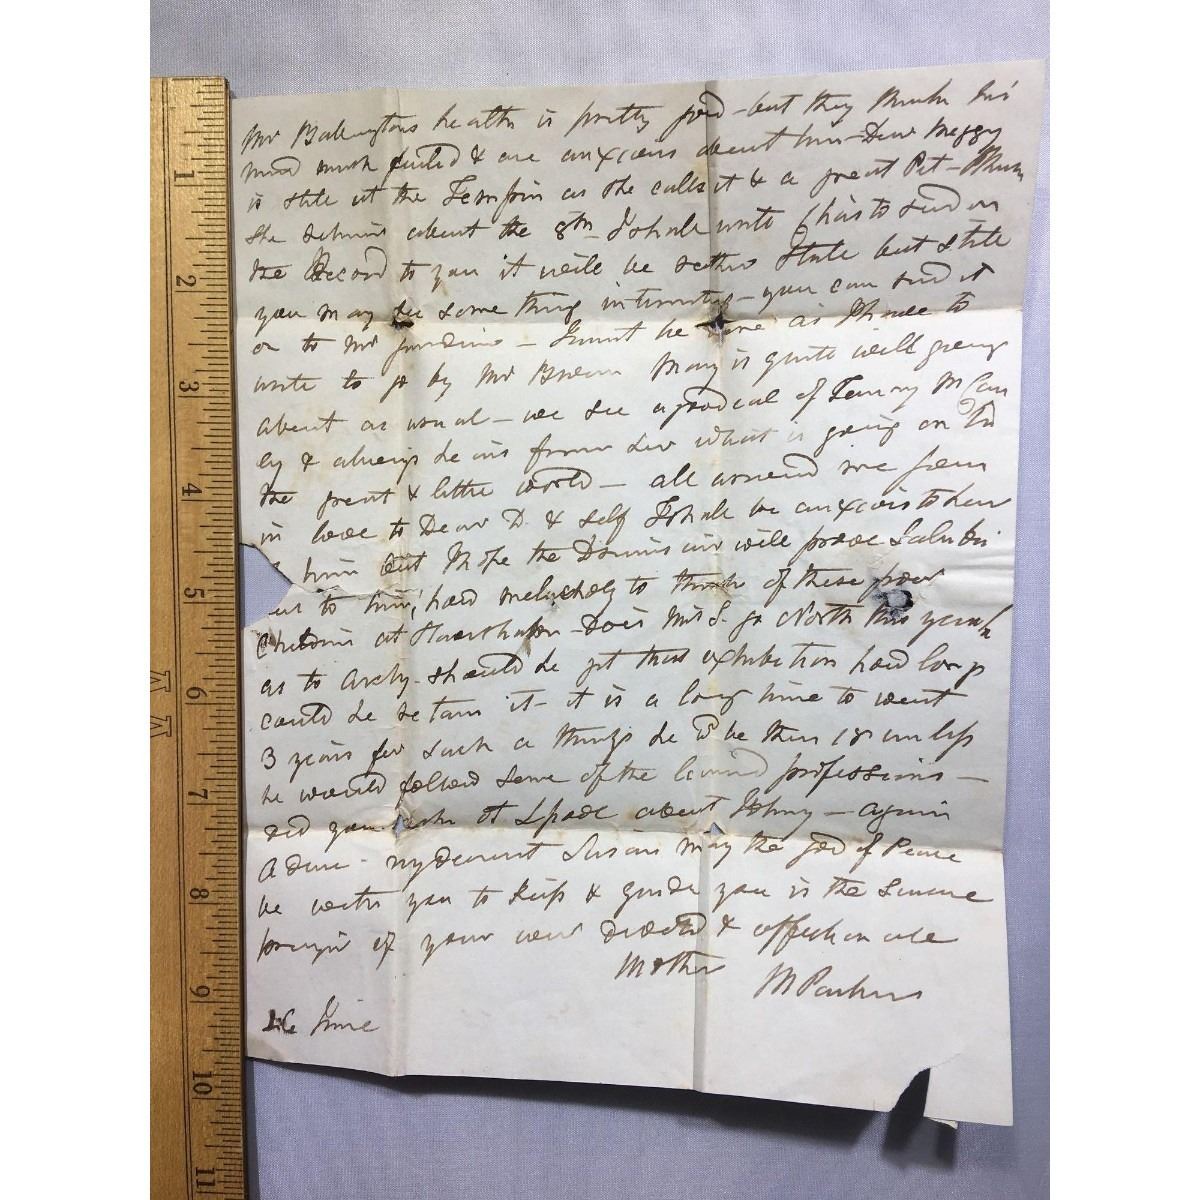 Mr Babingtons health is pretty good - but they think his
mind much failed & are anxious about him - Dear Meggy
is still at the as she calls it & a great Pet -
she returns about the 8th - I shall write Chas to send on
the Record to you it will be rather Stale but still
you may see some thing interesting - you can send it
on to Mr - I must be done as I have to
write to by Mr Brown Mary is quite well going
about as usual - we see a good eal of
ey & always hears from her what is going on In
the great & little world - all around me join
in love to Dear D. & self I shall be anxious to hear
him but I hope the air will prove Salubri
us to him, how melancholy to think of these poor
Children at - Does Mrs S. go North this year
as to Archy - should he get this exhibition how long
could he retain it - it is a long time to want
3 years for such a thing he wd be then 18 unless
he would follow some of the learned professions -
did you of about Johny - again
Adieu - my dearest Susan may the god of Peace
be with you to keep & guide you is the Sincere
prayer of your ever devoted & affectionate
Mother M Parkins
June
1
2
3
4
5
6
7
8
9
10
11